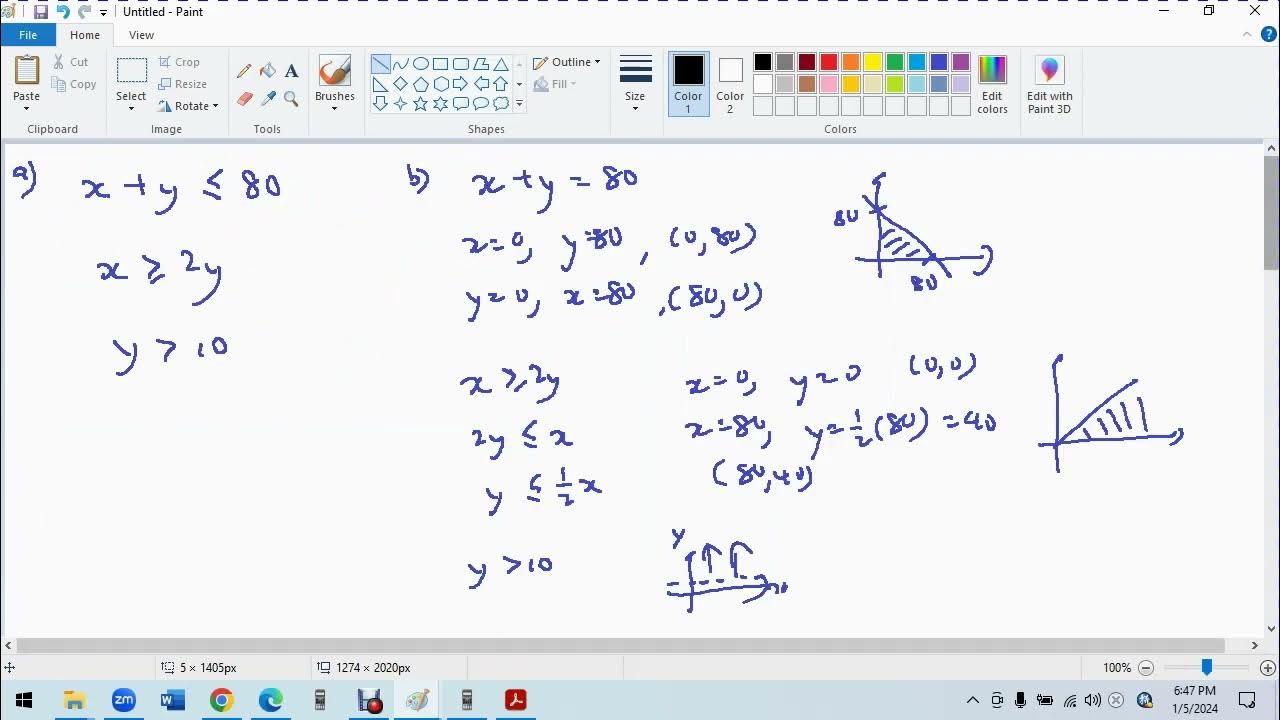 Untitled - Paint
File Home View
Paste Cut Copy
Clipboard
Select Crop Resize Rotate
Image
Tools
Brushes
Shapes
Outline
Fill
Size
Color 1
Color 2
Colors
Edit colors
Edit with Paint 3D
a) x + y ≤ 80
x ≥ 2y
y > 10
b) x + y = 80
x = 0, y = 80, (0, 80)
y = 0, x = 80, (80, 0)
80
80
x ≥ 2y
2y ≤ x
y ≤ 1/2 x
x = 0, y = 0 (0, 0)
x = 80, y = 1/2 (80) = 40
(80, 40)
y > 10
y
5 × 1405px
1274 × 2020px
100%
zm
W
6:47 PM
1/5/2024